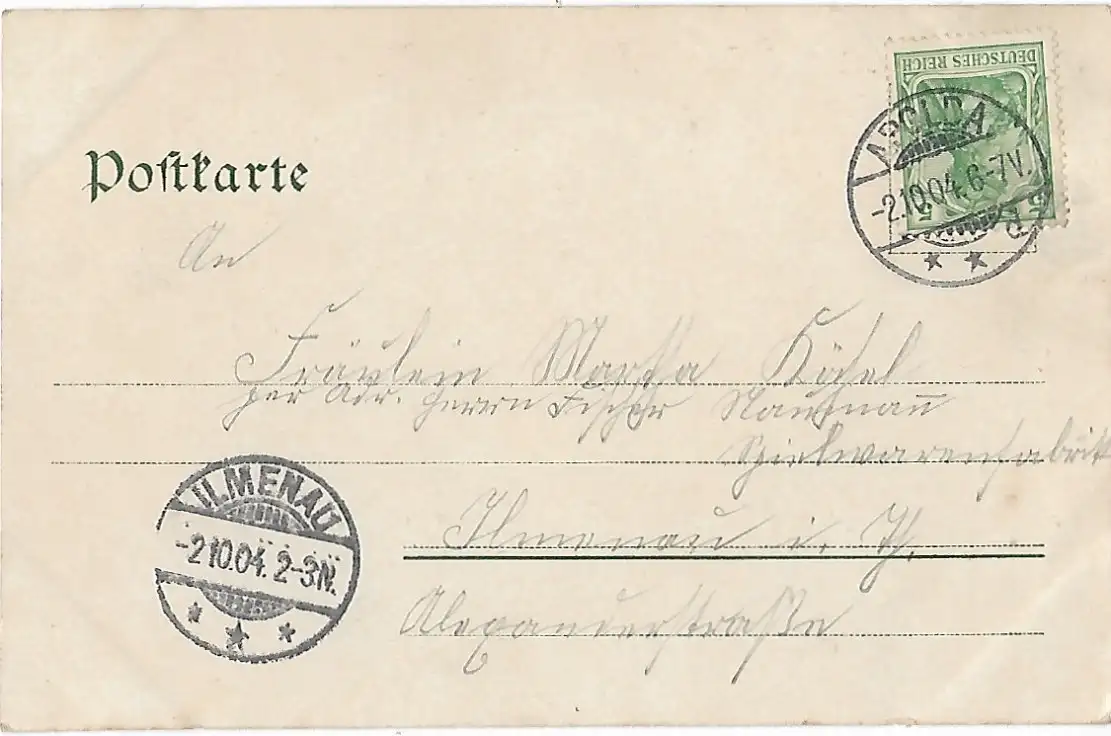 DEUTSCHES REICH
5 5
APOLDA
-2.10.04. 6-7V.
Postkarte
An
Fräulein Martha Kösel
per Adr. Herrn Fischer
Spielwarenfabrik
ILMENAU
-2.10.04. 2-3N.
Ilmenau i. Th.
Alexanderstraße